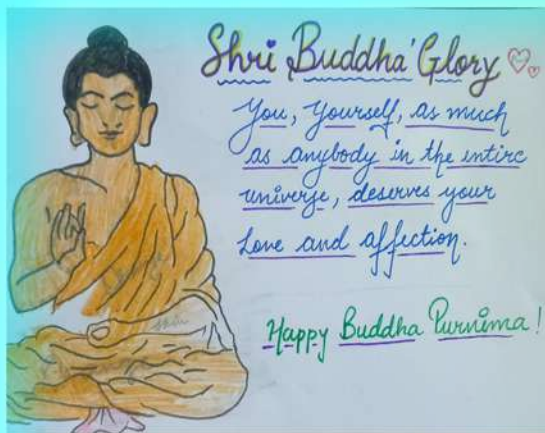 Shri Buddha' Glory
You, Yourself, as much
as anybody in the entire
universe, deserves your
Love and affection.
Happy Buddha Purnima!